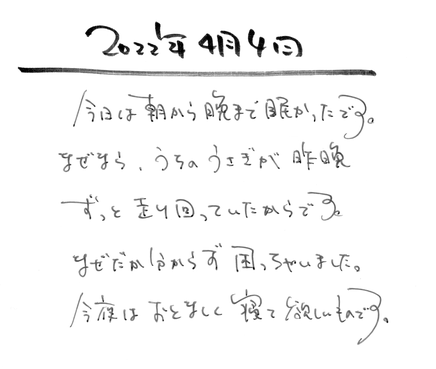 2022年4月4日
今日は朝から晩まで眠かったです。
なぜなら、うちのうさぎが昨晩
ずっと走り回っていたからです。
なぜだか分からず困っちゃいました。
今夜はおとなしく寝て欲しいものです。